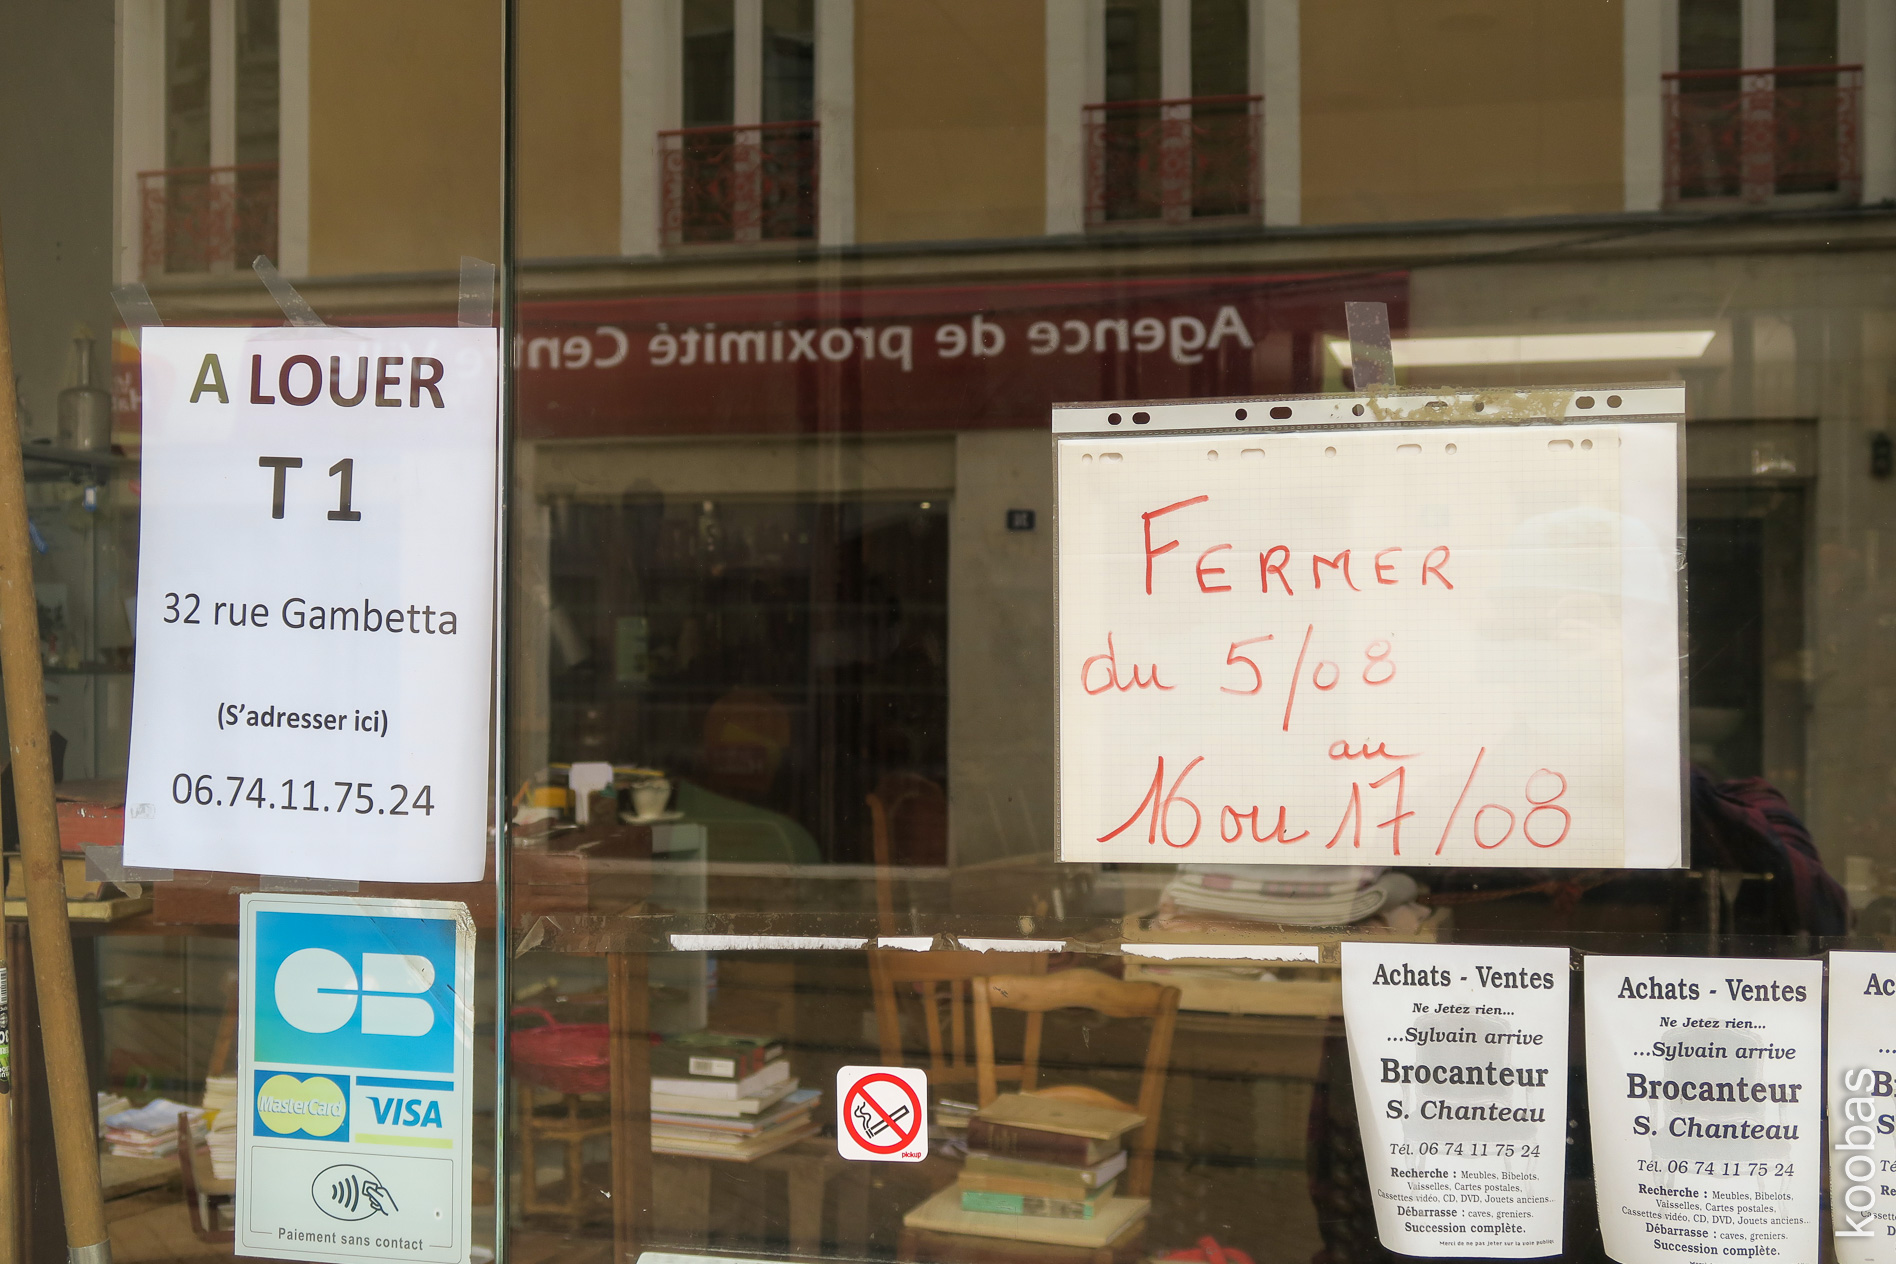 A LOUER
T 1
32 rue Gambetta
(S'adresser ici)
06.74.11.75.24
CB
MasterCard
VISA
Paiement sans contact
Agence de proximité Centre
FERMER
du 5/08
au
16 ou 17/08
pickup
Achats - Ventes
Ne Jetez rien...
...Sylvain arrive
Brocanteur
S. Chanteau
Tél. 06 74 11 75 24
Recherche : Meubles, Bibelots,
Vaisselles, Cartes postales,
Cassettes vidéo, CD, DVD, Jouets anciens...
Débarrasse : caves, greniers.
Succession complète.
Merci de ne pas jeter sur la voie publique
Achats - Ventes
Ne Jetez rien...
...Sylvain arrive
Brocanteur
S. Chanteau
Tél. 06 74 11 75 24
Recherche : Meubles, Bibelots,
Vaisselles, Cartes postales,
Cassettes vidéo, CD, DVD, Jouets anciens...
Débarrasse : caves, greniers.
Succession complète.
koobas